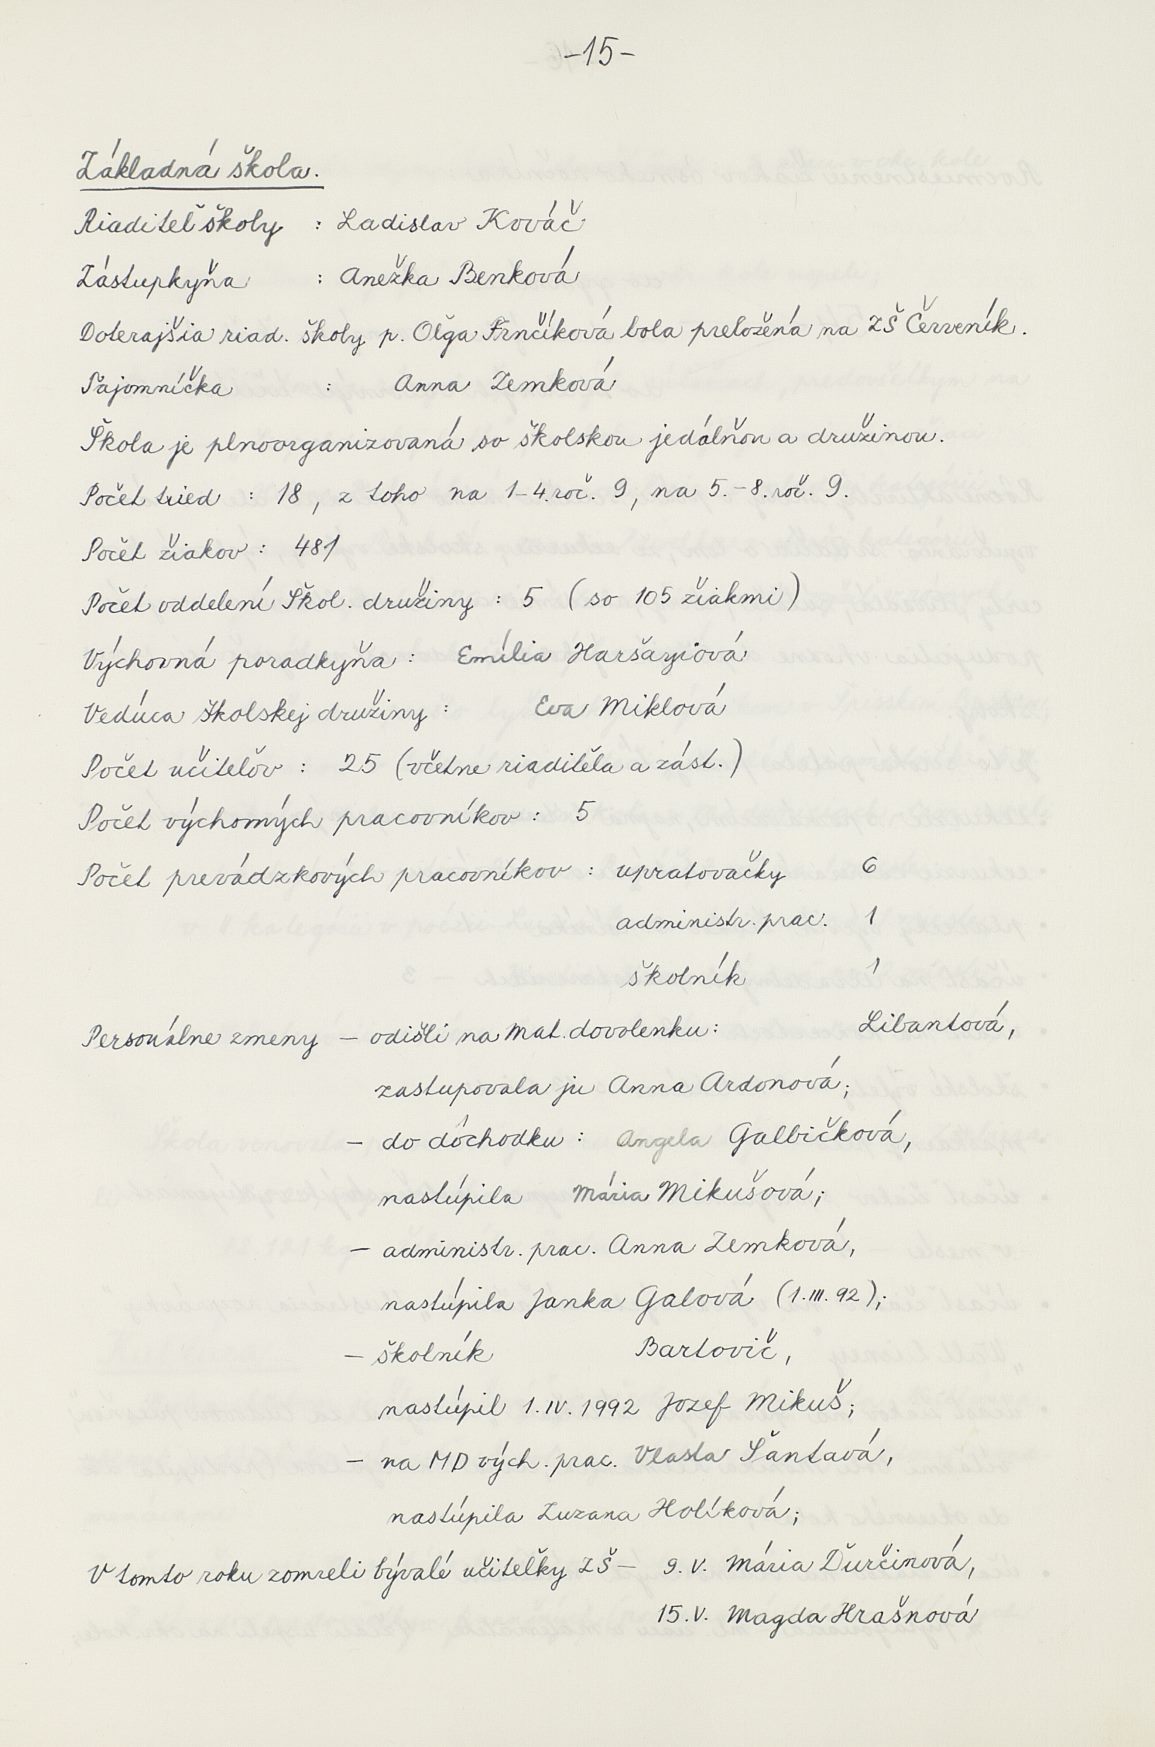 -15-
Základná škola.
Riaditeľ školy : Ladislav Kováč
Zástupkyňa : Anežka Benková
Doterajšia riad. školy p. Oľga Frnčíková bola preložená na ZŠ Červeník.
Tajomníčka : Anna Zemková
Škola je plnoorganizovaná so školskou jedálňou a družinou.
Počet tried : 18, z toho na 1-4.roč. 9, na 5.-8.roč. 9.
Počet žiakov : 481
Počet oddelení Škol. družiny : 5 (so 105 žiakmi)
Výchovná poradkyňa : Emília Haršányiová
Vedúca školskej družiny : Eva Miklová
Počet učiteľov : 25 (včetne riaditeľa a zást.)
Počet výchovných pracovníkov : 5
Počet prevádzkových pracovníkov : upratovačky 6
administr. prac. 1
školník 1
Personálne zmeny - odišli na mat. dovolenku: Libantová,
zastupovala ju Anna Ardonová;
- do dôchodku : Angela Galbičková,
nastúpila Mária Mikušová;
- administr. prac. Anna Zemková,
nastúpila Janka Galová (1.III.92);
- školník Bartovič,
nastúpil 1.IV.1992 Jozef Mikuš;
- na MD vých. prac. Vlasta Šantavá,
nastúpila Zuzana Holíková;
V tomto roku zomreli bývalé učiteľky ZŠ - 9.V. Mária Ďurčinová,
15.V. Magda Hrašnová